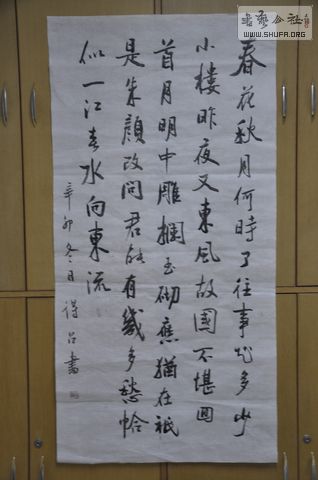 書藝公社
WWW.SHUFA.ORG
春花秋月何時了往事知多少
小樓昨夜又東風故國不堪回
首月明中雕欄玉砌應猶在祗
是朱顏改問君能有幾多愁恰
似一江春水向東流
辛卯冬日得書